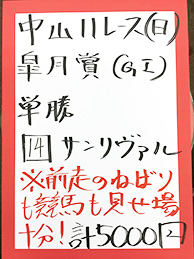 中山11レース(日)
皐月賞(GI)
単勝
14 サンリヴァル
※前走のねばり
も競馬も見せ場
十分!計5000円